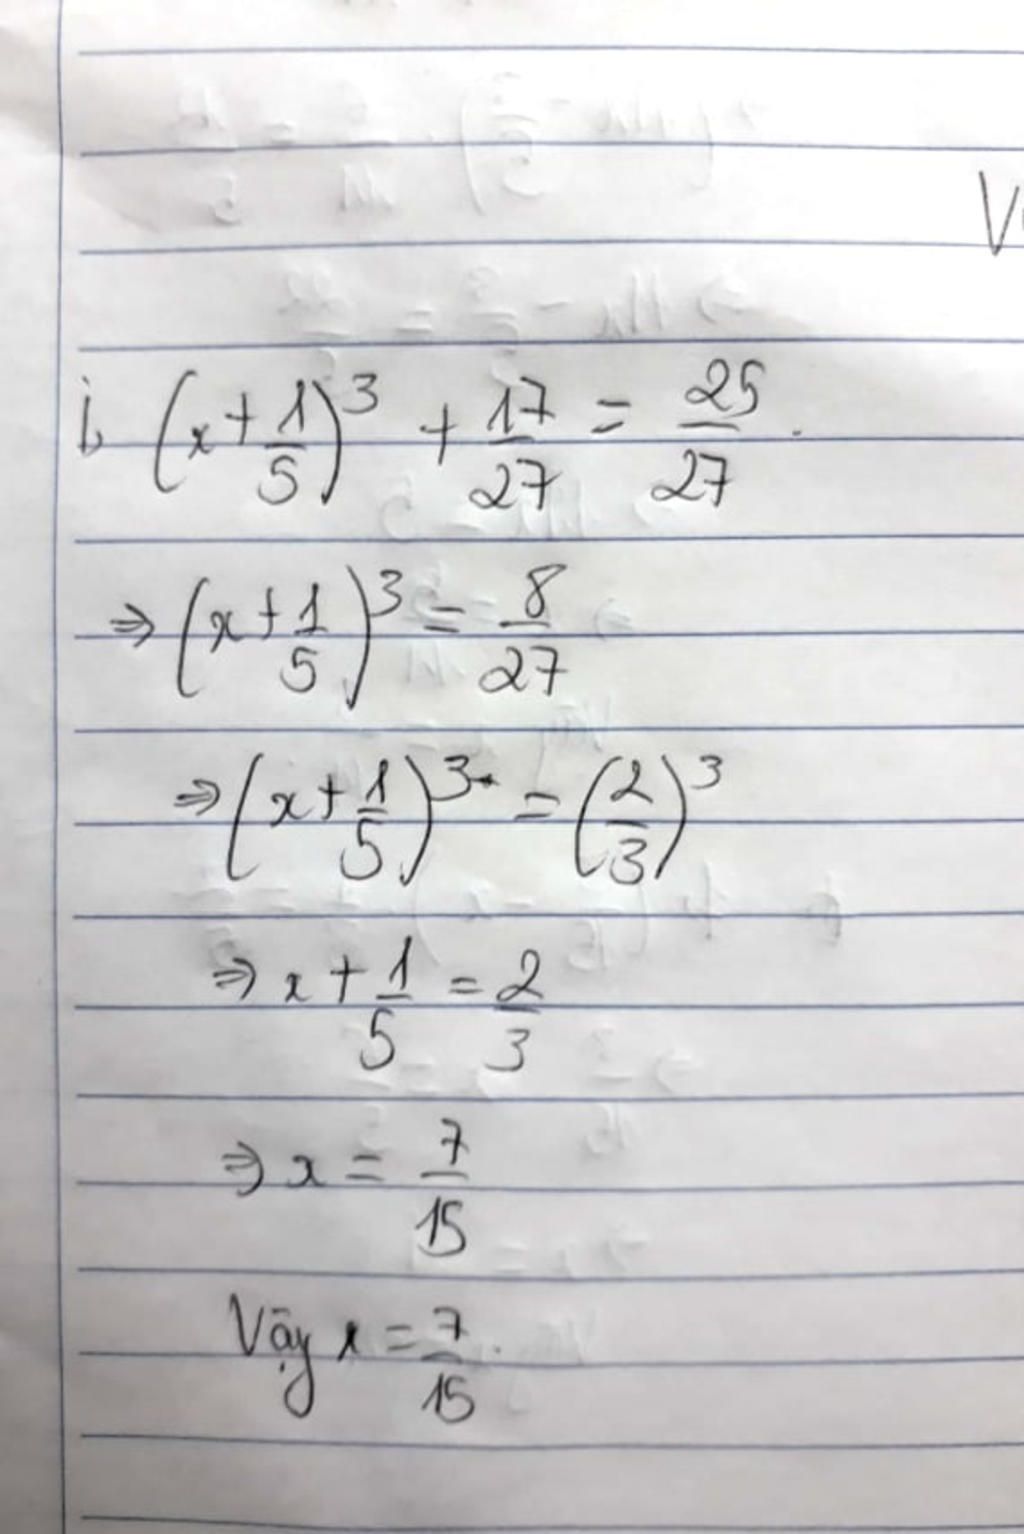 i, (x + 1/5)³ + 17/27 = 25/27.
⇒ (x + 1/5)³ = 8/27
⇒ (x + 1/5)³ = (2/3)³
⇒ x + 1/5 = 2/3
⇒ x = 7/15
Vậy x = 7/15.